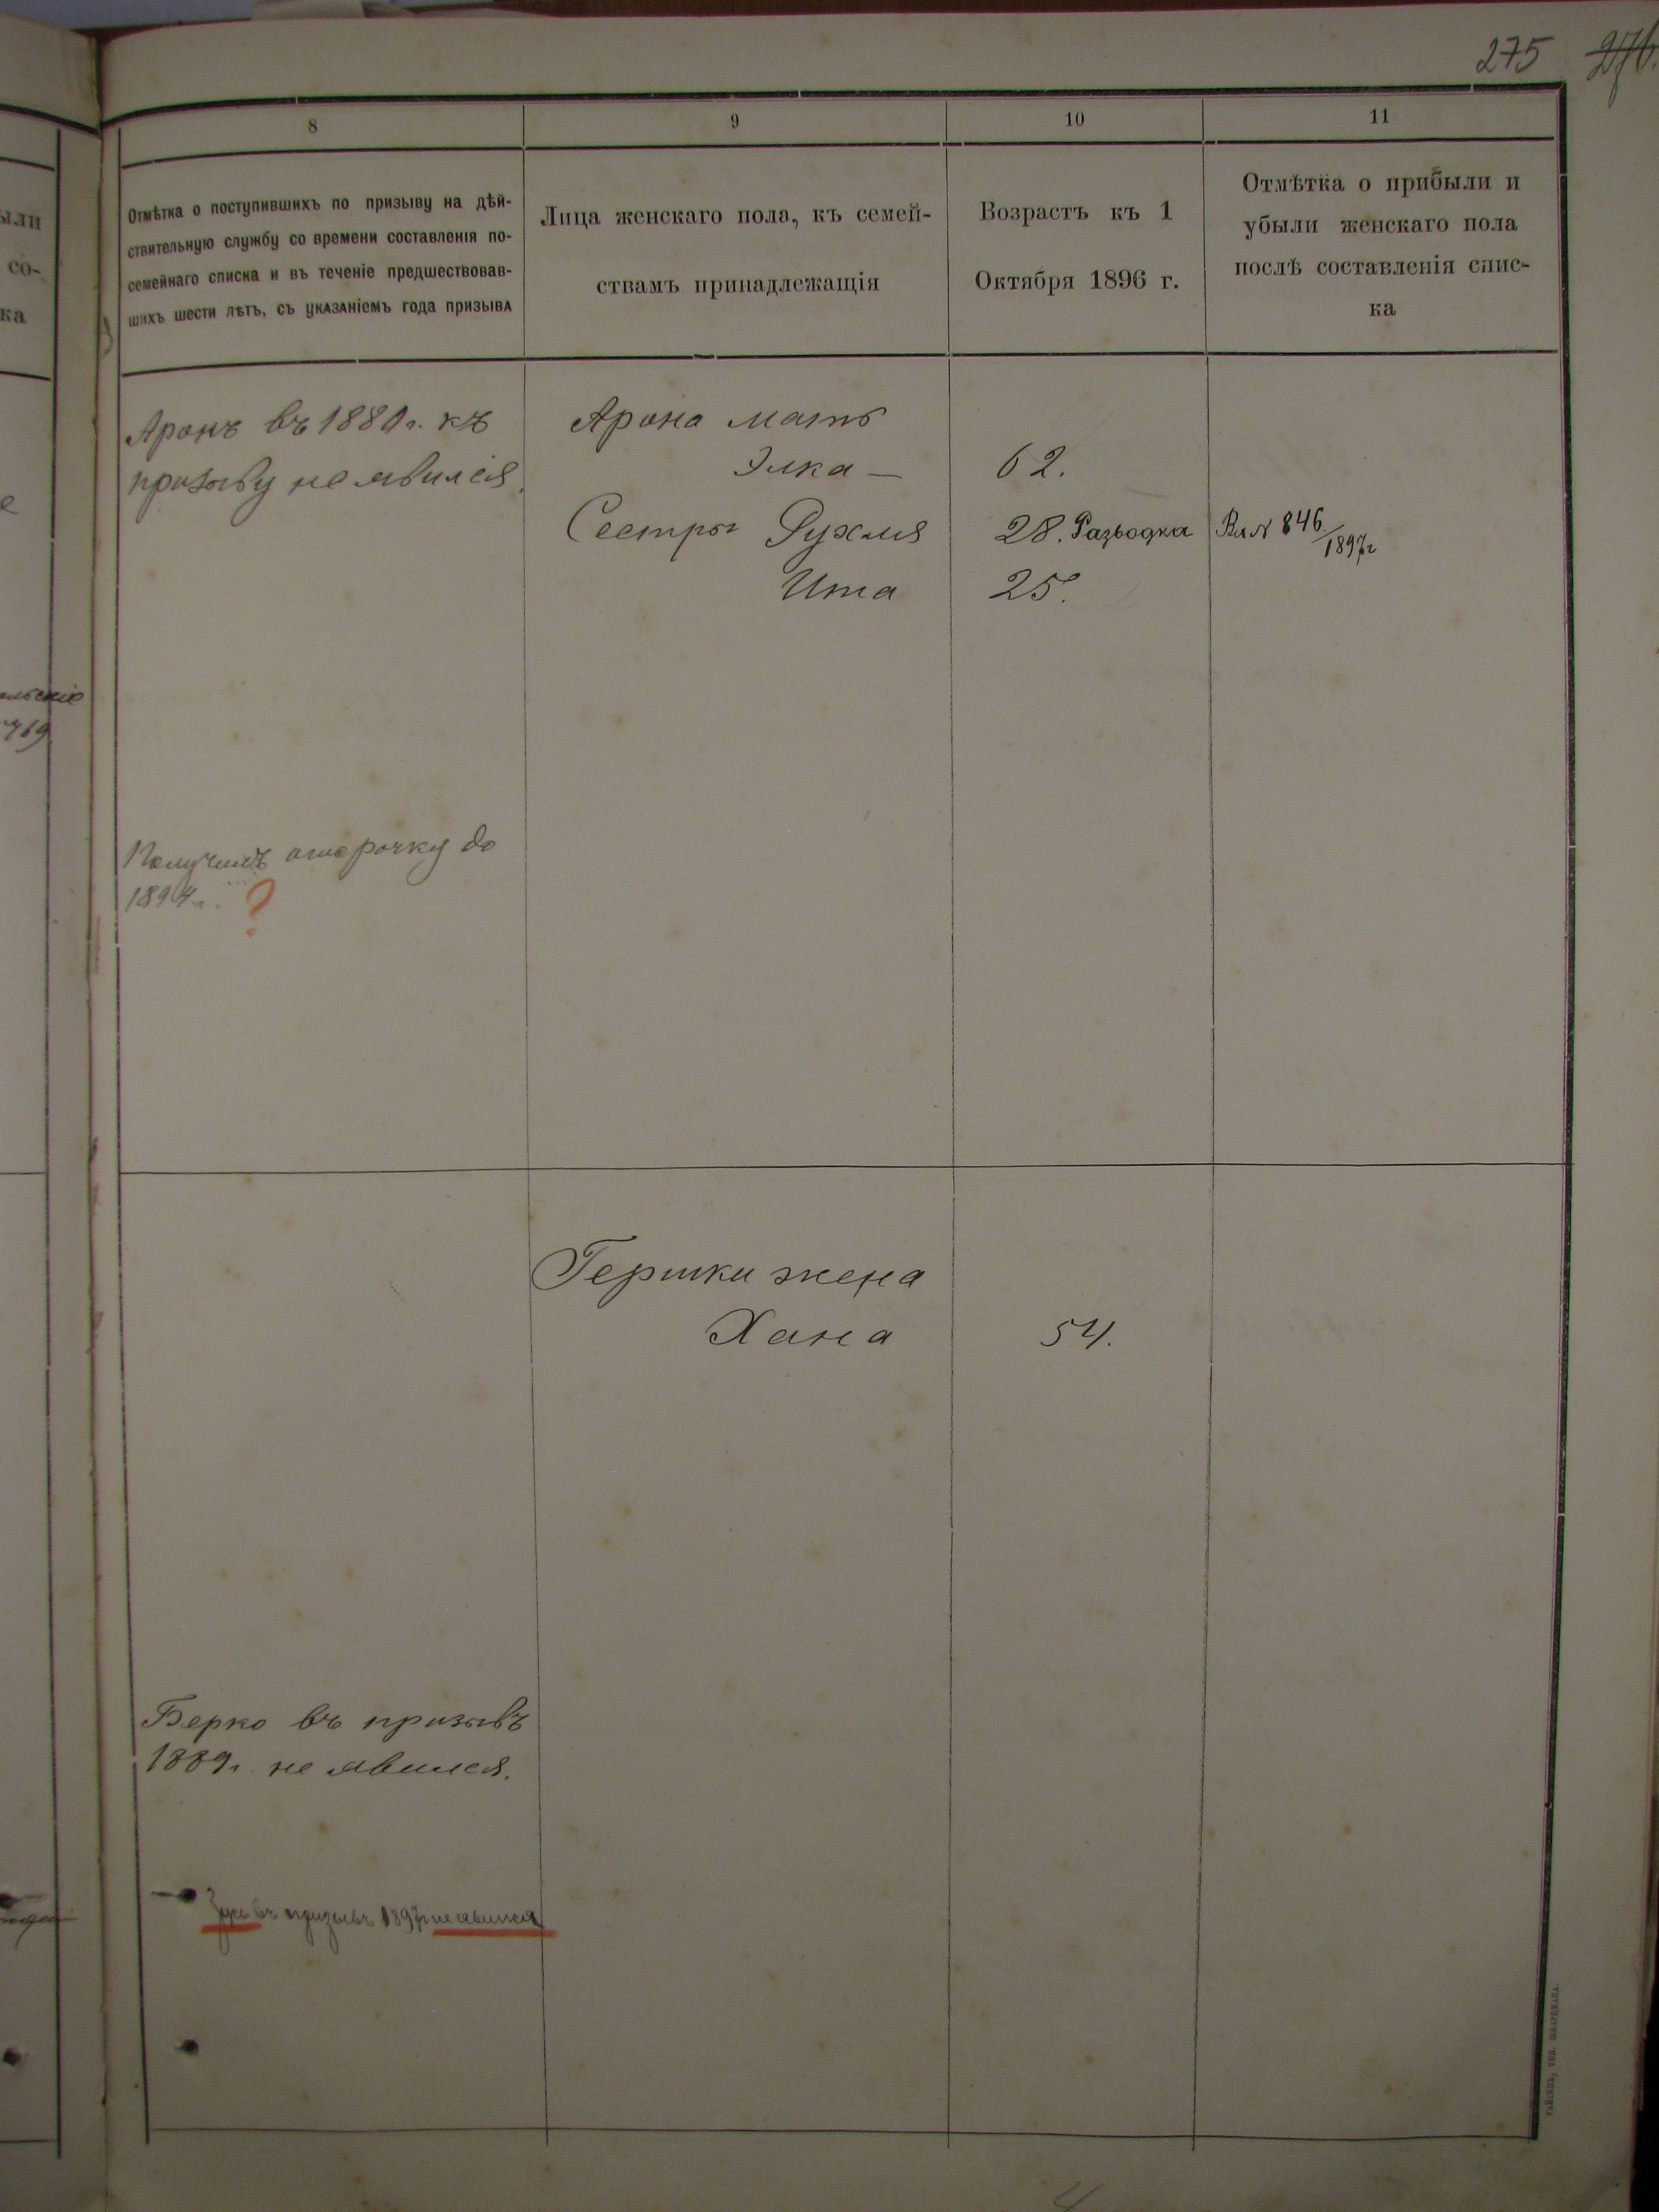 275 276.
8
9
10
11
Отмѣтка о поступившихъ по призыву на дѣй-
ствительную службу со времени составленія по-
семейнаго списка и въ теченіе предшествовав-
шихъ шести лѣтъ, съ указаніемъ года призыва
Лица женскаго пола, къ семей-
ствамъ принадлежащія
Возрастъ къ 1
Октября 1896 г.
Отмѣтка о прибыли и
убыли женскаго пола
послѣ составленія спис-
ка
или
со-
ка
Аронъ въ 1880 г. къ
призыву не явился.
Арона мать
Элка —
62.
Сестры Рухля
28. Разводка
Вх № 846/1897г
Ита
25.
719
Получилъ отсрочку до
1894 г. ?
Гершки жена
Хана
54.
Берко въ призывъ
1889 г. не явился.
Зусь въ призывъ 1897г не явился